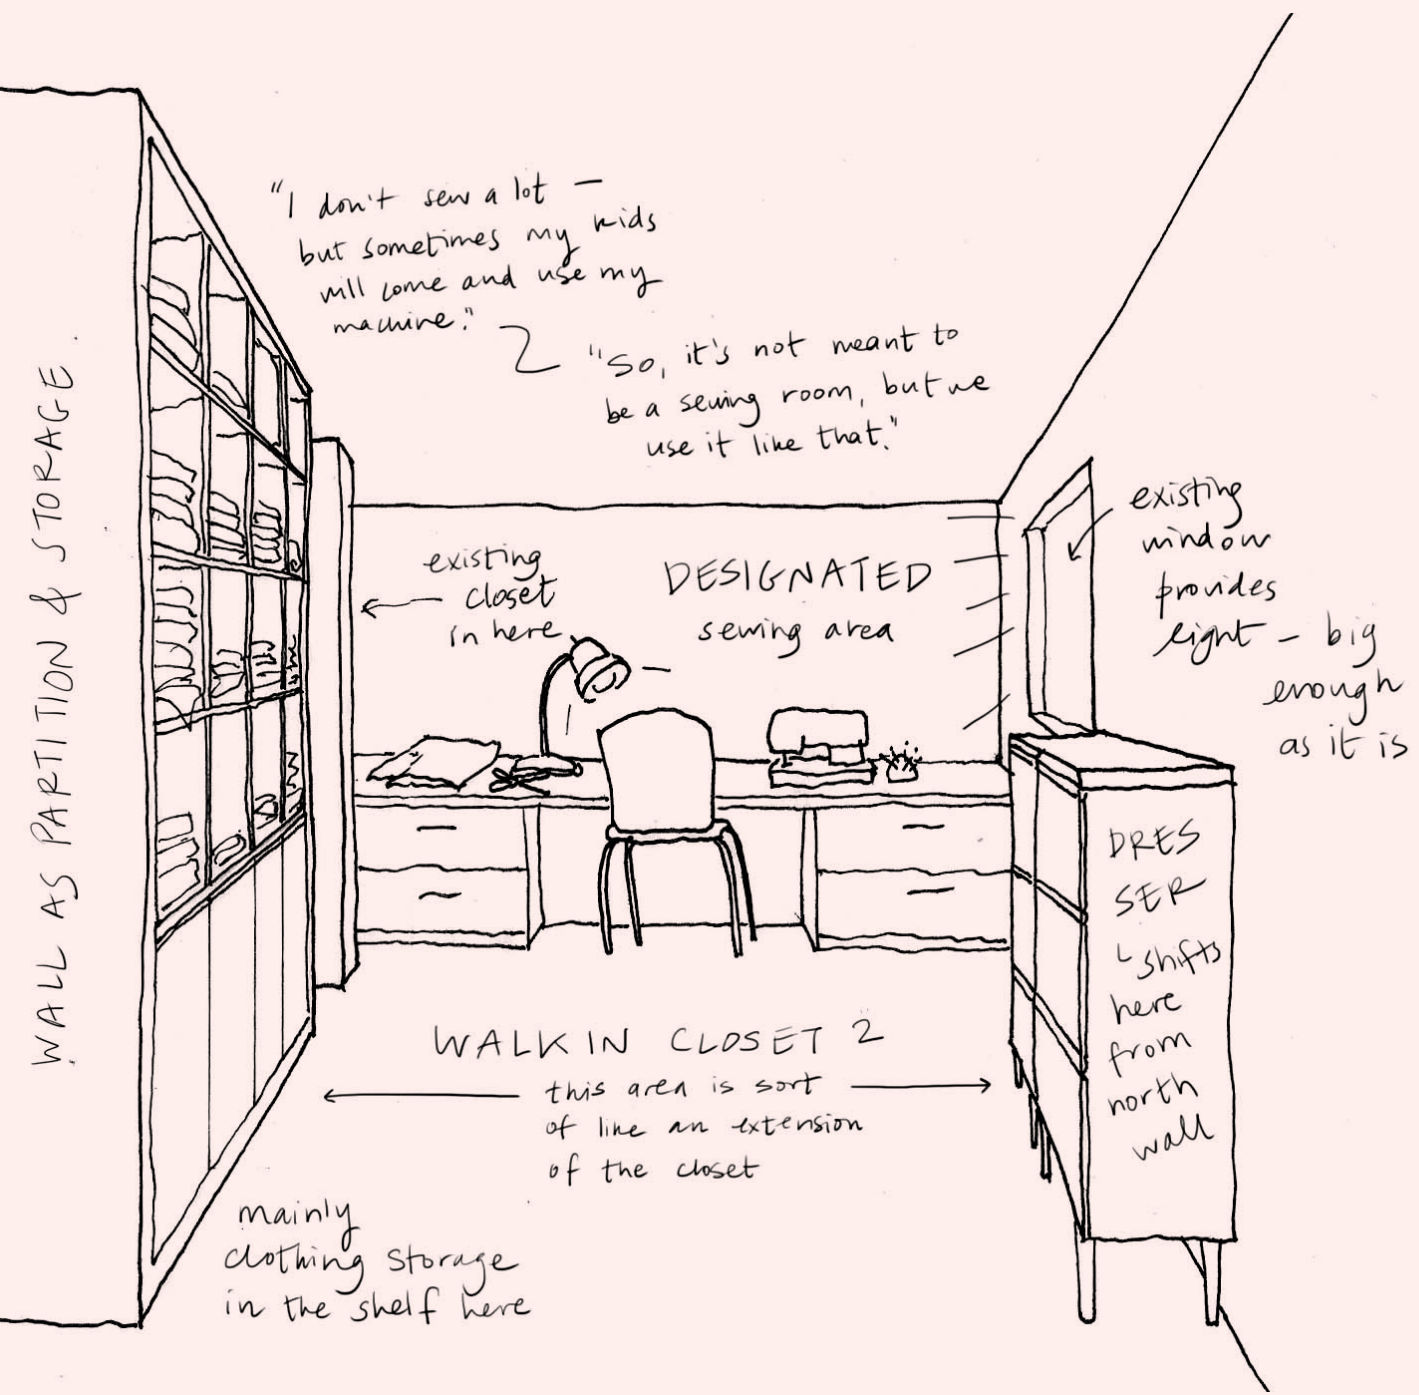 WALL AS PARTITION & STORAGE
"I don't sew a lot –
but sometimes my kids
will come and use my
machine."
"So, it's not meant to
be a sewing room, but we
use it like that."
existing
closet
in here
DESIGNATED
sewing area
existing
window
provides
light – big
enough
as it is
DRES
SER
shifts
here
from
north
wall
WALK IN CLOSET 2
this area is sort
of like an extension
of the closet
mainly
clothing storage
in the shelf here